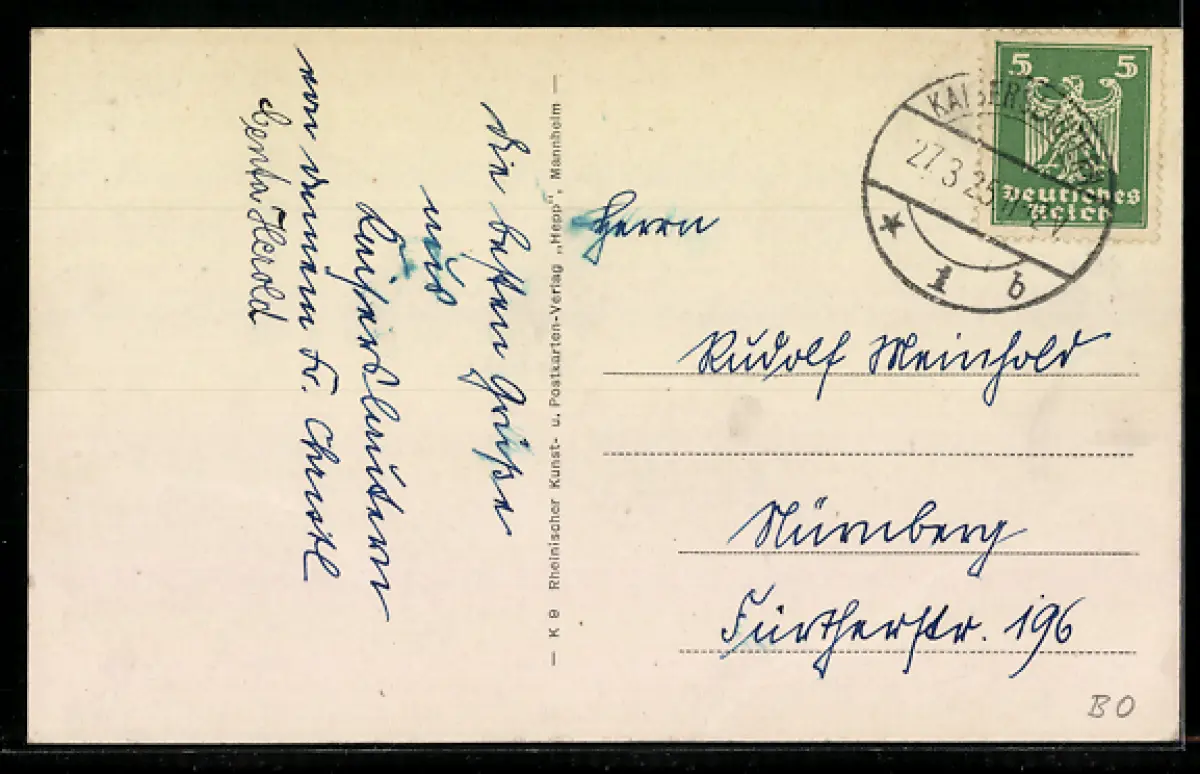 Die besten Grüße
aus
Kaiserslautern
von deinem Fr. Christl
Centa Herold
— K 9 Rheinischer Kunst- u. Postkarten-Verlag „Hepp“, Mannheim —
5 5
Deutsches
Reich
KAISERSLAUTERN
27.3.25
* 1 b
Herrn
Rudolf Meinhold
Nürnberg
Fürtherstr. 196
BO